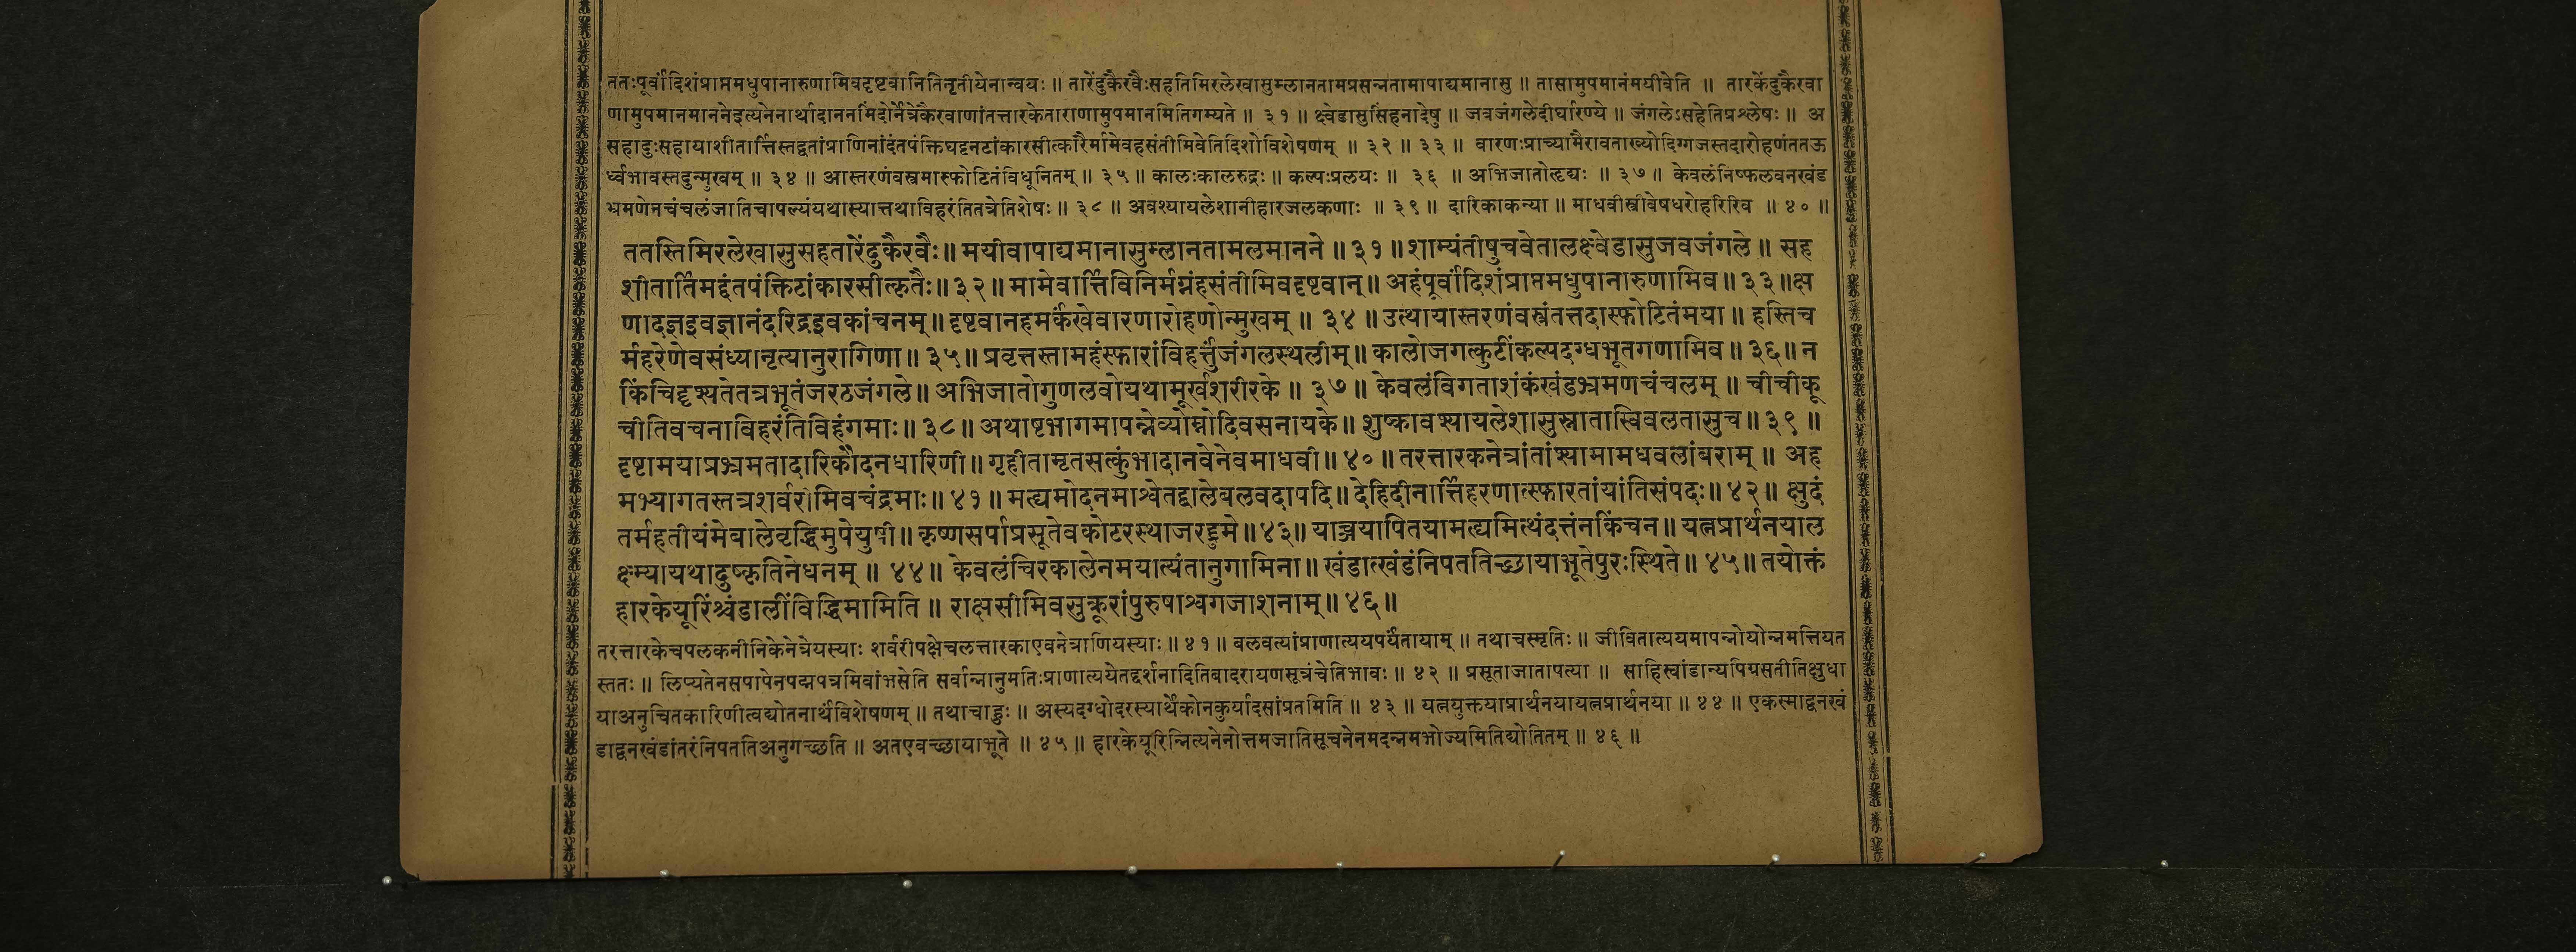 ततःपूर्वांदिशंप्राप्तमधुपानारुणामिवदृष्टवानितितृतीयेनान्वयः ॥ तारेंदुकैरवैःसहतिमिरलेखासुम्लानतामप्रसन्नतामापाद्यमानासु ॥ तासामुपमानंमयीवेति ॥ तारकेंदुकैरवा
णामुपमानमाननेइत्यनेनार्थादाननमिंदोर्नेत्रेकैरवाणांतत्तारकेताराणामुपमानमितिगम्यते ॥ ३१ ॥ क्ष्वेडासुसिंहनादेषु ॥ जवजंगलेदीर्घारण्ये ॥ जंगलेऽसहेतिप्रश्लेषः ॥ अ
सहादुःसहायाशीतार्त्तिस्तद्वतांप्राणिनांदंतपंक्तिघट्टनटांकारसीत्कारैर्मामेवहसंतीमिवेतिदिशोविशेषणम् ॥ ३२ ॥ ३३ ॥ वारणःप्राच्यामैरावताख्योदिग्गजस्तदारोहणंततऊ
र्ध्वभावस्तदुन्मुखम् ॥ ३४ ॥ आस्तरणंवस्त्रमास्फोटितंविधूनितम् ॥ ३५ ॥ कालःकालरुद्रः ॥ कल्पःप्रलयः ॥ ३६ ॥ अभिजातोत्दृद्यः ॥ ३७ ॥ केवलंनिष्फलवनखंड
भ्रमणेनचंचलंजातिचापल्यंयथास्यात्तथाविहरंतितत्रेतिशेषः ॥ ३८ ॥ अवश्यायलेशानीहारजलकणाः ॥ ३९ ॥ दारिकाकन्या ॥ माधवीस्त्रीवेषधरोहरिरिव ॥ ४० ॥
ततस्तिमिरलेखासुसहतारेंदुकैरवैः ॥ मयीवापाद्यमानासुम्लानतामलमानने ॥ ३१ ॥ शाम्यंतीषुचवेतालक्ष्वेडासुजवजंगले ॥ सह
शीतार्तिमद्दंतपंक्तिटांकारसीत्कृतैः ॥ ३२ ॥ मामेवार्त्तिविनिर्मग्नंहसंतीमिवदृष्टवान् ॥ अहंपूर्वांदिशंप्राप्तमधुपानारुणामिव ॥ ३३ ॥ क्ष
णादज्ञइवज्ञानंदरिद्रइवकांचनम् ॥ दृष्टवानहमर्कंखेवारणारोहणोन्मुखम् ॥ ३४ ॥ उत्थायास्तरणंवस्त्रंतत्तदास्फोटितंमया ॥ हस्तिच
र्महरेणेवसंध्यानृत्यानुरागिणा ॥ ३५ ॥ प्रवृत्तस्तामहंस्फारांविहर्त्तुंजंगलस्थलीम् ॥ कालोजगत्कुटींकल्पदग्धभूतगणामिव ॥ ३६ ॥ न
किंचिद्दृश्यतेतत्रभूतंजरठजंगले ॥ अभिजातोगुणलवोयथामूर्खशरीरके ॥ ३७ ॥ केवलंविगताशंकंखंडभ्रमणचंचलम् ॥ चीचीकू
चीतिवचनाविहरंतिविहंगमाः ॥ ३८ ॥ अथाष्टभागमापन्नेव्योम्नोदिवसनायके ॥ शुष्कावश्यायलेशासुस्नातास्विवलतासुच ॥ ३९ ॥
दृष्टामयाप्रभ्रमतादारिकौदनधारिणी ॥ गृहीतामृतसत्कुंभादानवेनेवमाधवी ॥ ४० ॥ तरत्तारकनेत्रांतांश्यामामधवलांबराम् ॥ अह
मभ्यागतस्तत्रशर्वरीमिवचंद्रमाः ॥ ४१ ॥ मत्द्यमोदनमाश्वेतद्बालेबलवदापदि ॥ देहिदीनार्त्तिहरणात्स्फारतांयांतिसंपदः ॥ ४२ ॥ क्षुदं
तर्महतीयंमेबालेवृद्धिमुपेयुषी ॥ कृष्णसर्पाप्रसूतेवकोटरस्थाजरद्द्रुमे ॥ ४३ ॥ याञ्जयापितयामत्द्यमित्थंदत्तंनकिंचन ॥ यत्नप्रार्थनयाल
क्ष्म्यायथादुष्कृतिनेधनम् ॥ ४४ ॥ केवलंचिरकालेनमयात्यंतानुगामिना ॥ खंडात्खंडंनिपततिच्छायाभूतेपुरःस्थिते ॥ ४५ ॥ तयोक्तं
हारकेयूरिंश्चंडालींविद्धिमामिति ॥ राक्षसीमिवसुक्रूरांपुरुषाश्वगजाशनाम् ॥ ४६ ॥
तरत्तारकेचपलकनीनिकेनेत्रेयस्याः शर्वरीपक्षेचलत्तारकाएवनेत्राणियस्याः ॥ ४१ ॥ बलवत्यांप्राणात्ययपर्यंतायाम् ॥ तथाचस्मृतिः ॥ जीवितात्ययमापन्नोयोन्नमत्तियत
स्ततः ॥ लिप्यतेनसपापेनपद्मपत्रमिवांभसेति सर्वान्नानुमतिःप्राणात्ययेतद्दर्शनादितिबादरायणसूत्रंचेतिभावः ॥ ४२ ॥ प्रसूताजातापत्या ॥ साहिस्वांडान्यपिग्रसतीतिक्षुधा
याअनुचितकारिणीत्वद्योतनार्थंविशेषणम् ॥ तथाचाहुः ॥ अस्यदग्धोदरस्यार्थेकोनकुर्यादसांप्रतमिति ॥ ४३ ॥ यत्नयुक्तयाप्रार्थनयायत्नप्रार्थनया ॥ ४४ ॥ एकस्माद्वनखं
डाद्वनखंडांतरंनिपततिअनुगच्छति ॥ अतएवच्छायाभूते ॥ ४५ ॥ हारकेयूरिन्नित्यनेनोत्तमजातिसूचनेनमदन्नमभोज्यमितिद्योतितम् ॥ ४६ ॥